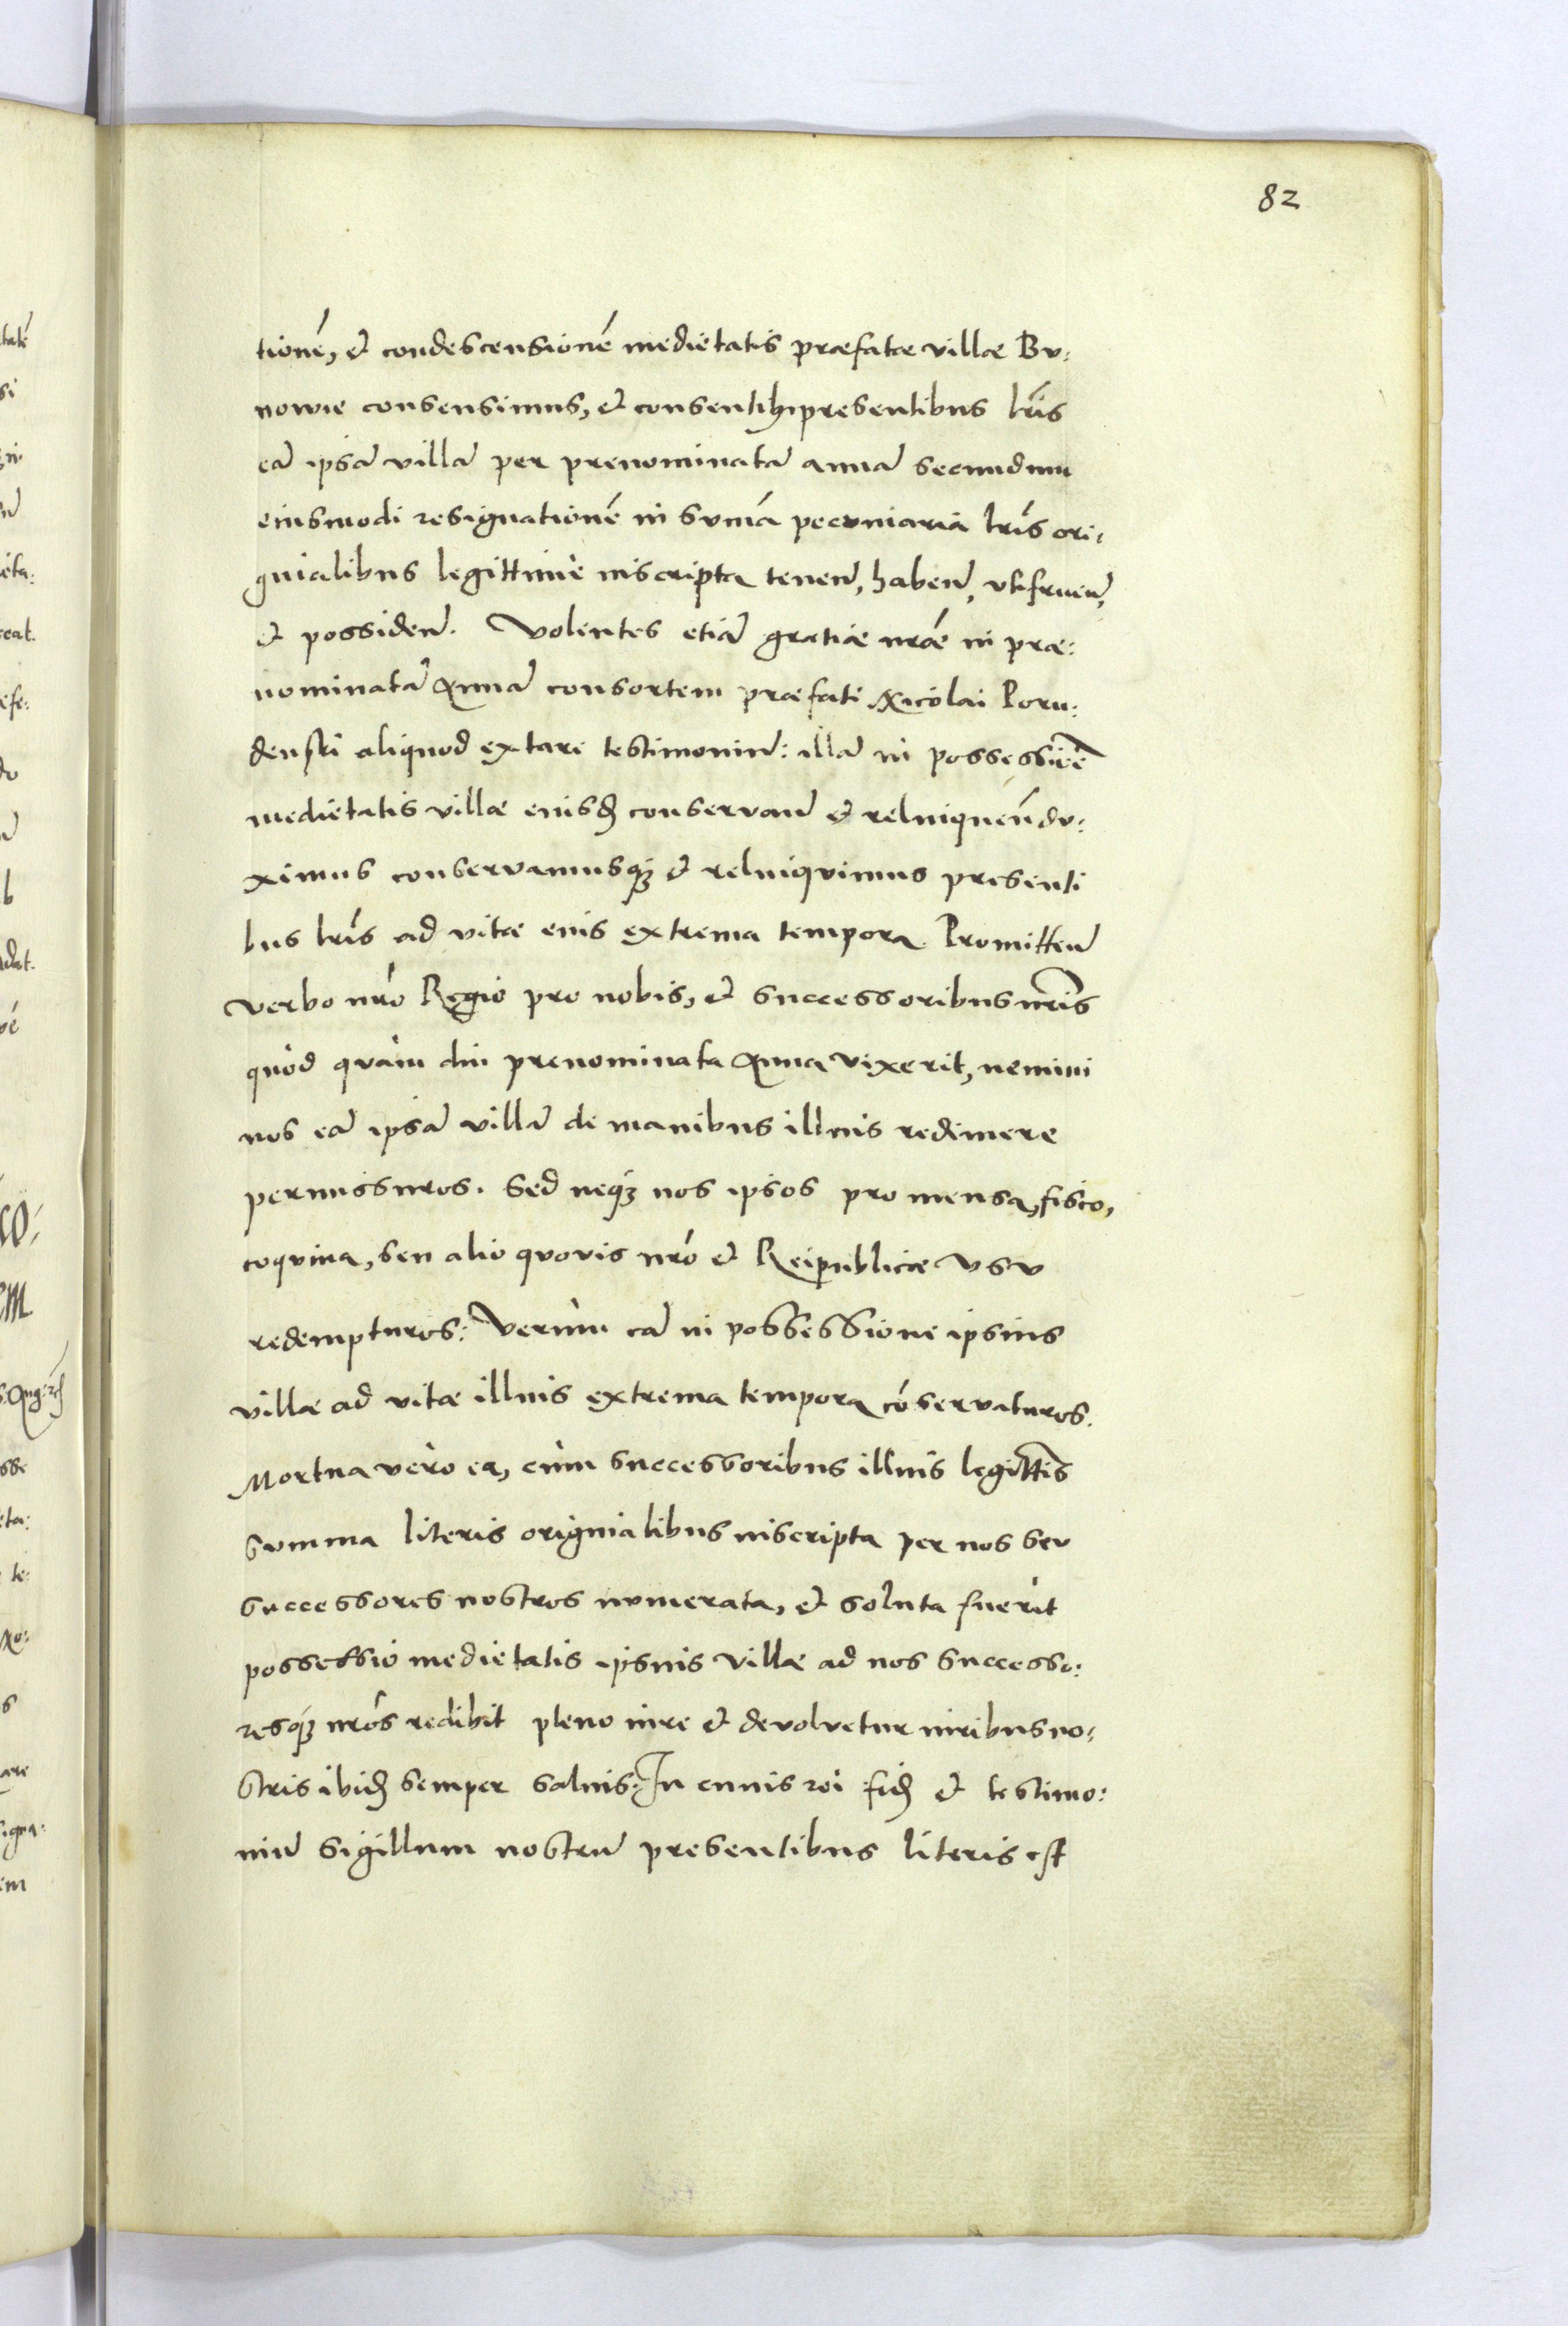 82
tionē, et condescensionē medietatis præfatæ villæ Bu:
nowie consensimus, et consentim9 presentibus lr̃is
eā ipsā villā per prenominatā annā secundum
eiusmodi resignationē in sum̃a pecuniaria lr̃is ori:
ginalibus legittime inscripta tenen̄, haben̄, utifruen̄,
et possiden̄. Volentes etiā gratiæ nr̃æ in præ:
nominatā Annā consortem præfati Nicolai Poru:
denski aliquod extare testimoniū: illā in possessiōe
medietatis villæ eiusd̄ conservan̄ et relinquen̄ du:
ximus conservamusq3 et relinquimus presenti
bus lr̃is ad vitæ eius extrema tempora. Promitten̄
verbo nr̃o Regio pro nobis, et successoribus nr̃is
quòd quàm diu prenominata Anna vixerit, nemini
nos eā ipsā villā de manibus illius redimere
permissuros. Sed neq3 nos ipsos pro mensa, fisco,
coquina, seu alio quovis nr̃o et Reipublicæ usu
redempturos: Verùm eā in possessione ipsius
villæ ad vitæ illius extrema tempora cōservaturos.
Mortua verò ea, cùm successoribus illius legittīs
summa literis originalibus inscripta per nos seu
successores nostros numerata, et soluta fuerit
possessio medietatis ipsius villæ ad nos successo:
resq3 nr̃os redibit pleno iure et devolvetur iuribus no:
stris ibid̄ semper salvis: In cuius rei fid̄ et testimo:
niū sigillum nostrū presentibus literis est